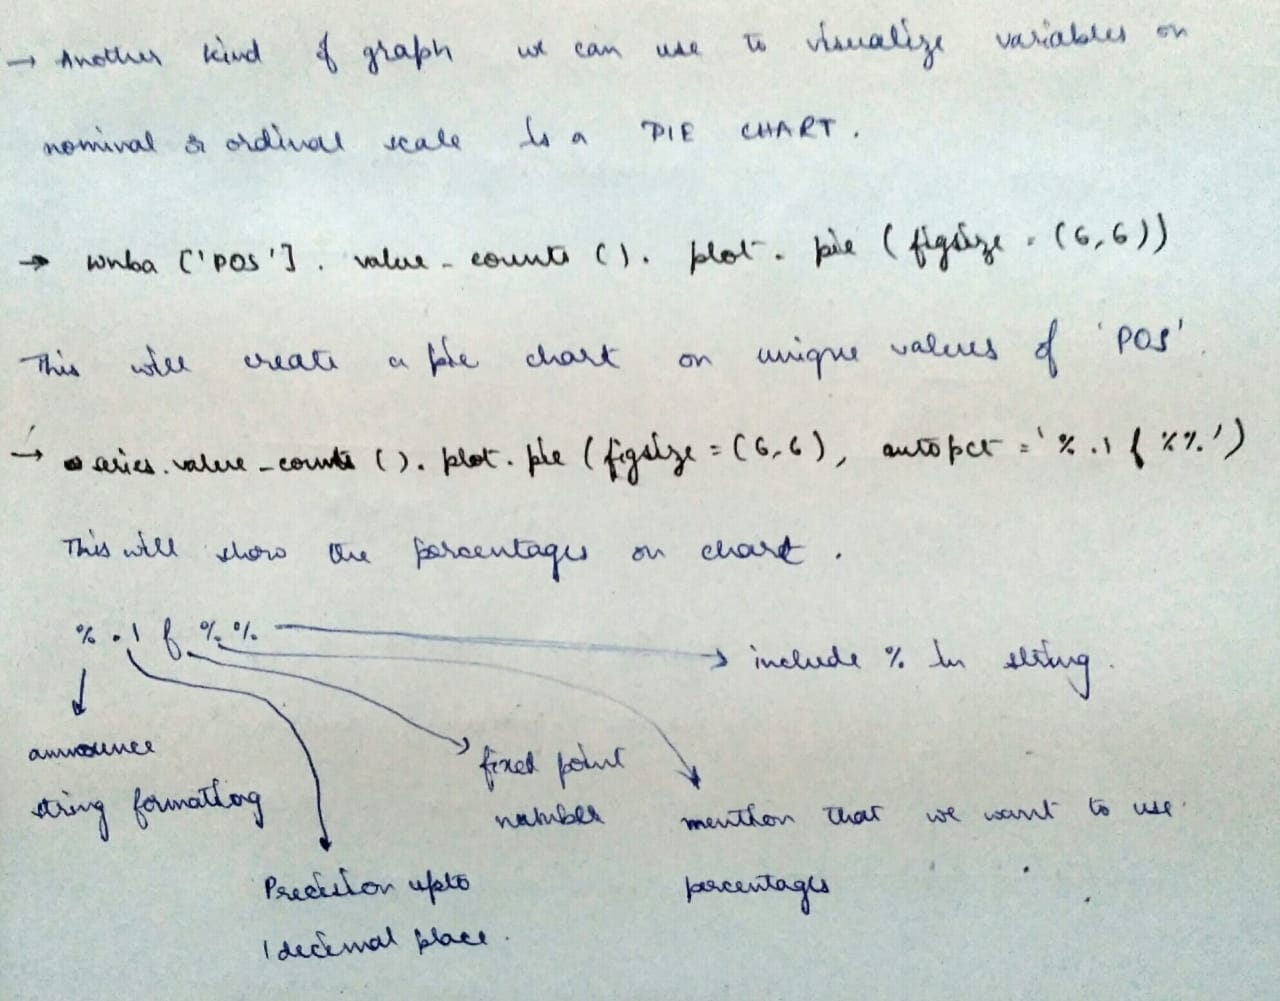 → Another kind of graph we can use to visualize variables on
nominal or ordinal scale is a PIE CHART.
→ wnba ['POS'] . value_counts (). plot. pie (figsize = (6,6))
This will create a pie chart on unique values of 'POS'.
→ series.value_counts (). plot. pie (figsize = (6,6), autopct = '%.1f%%')
This will show the percentages on chart.
%.1f%%
→ include % in string.
announce
string formatting
fixed point
number
mention that we want to use
percentages
Precision upto
1 decimal place.